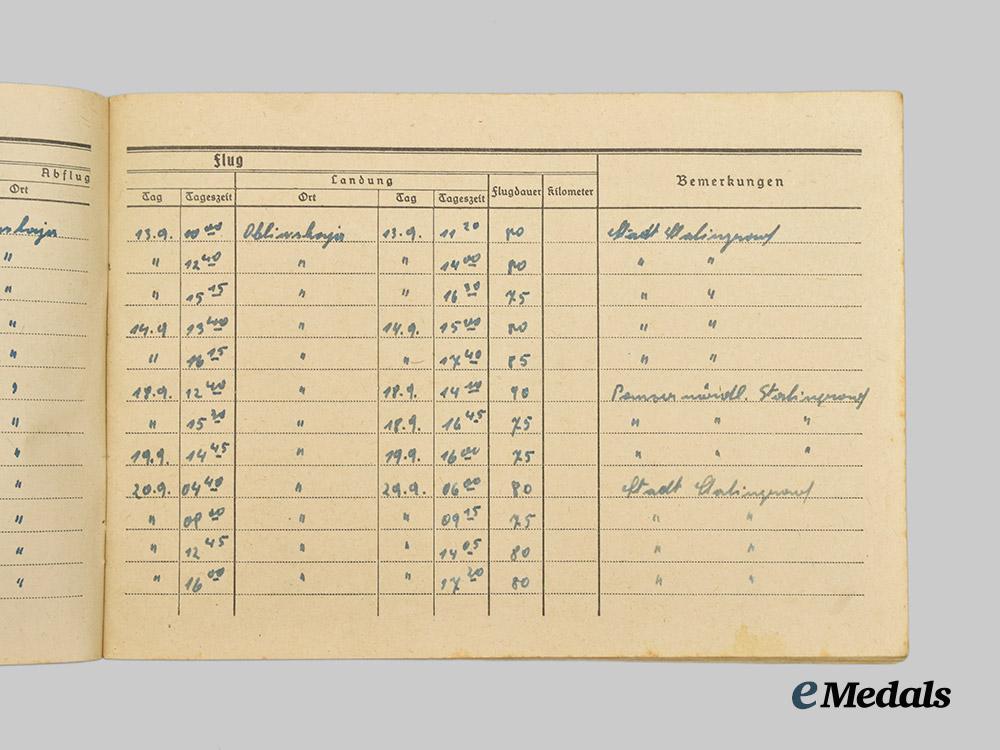 Flug
Abflug Landung Bemerkungen
Ort Tag Tageszeit Ort Tag Tageszeit Flugdauer Kilometer
13.9. 10 00 Obliwskaja 13.9. 11 20 80 Stadt Stalingrad
" " 12 40 " " 14 00 80 " "
" " 15 15 " " 16 30 75 " "
" 14.9 13 40 " 14.9. 15 00 80 " "
" " 16 15 " " 17 40 85 " "
" 18.9. 12 40 " 18.9. 14 10 90 Panzer nördl. Stalingrad
" " 15 30 " 18.9. 16 45 75 " " "
" 19.9. 14 45 " 19.9. 16 00 75 " " "
" 20.9. 04 40 " 20.9. 06 00 80 Stadt Stalingrad
" " 08 00 " " 09 15 75 " "
" " 12 45 " " 14 05 80 " "
" " 16 00 " " 17 20 80 " "
eMedals